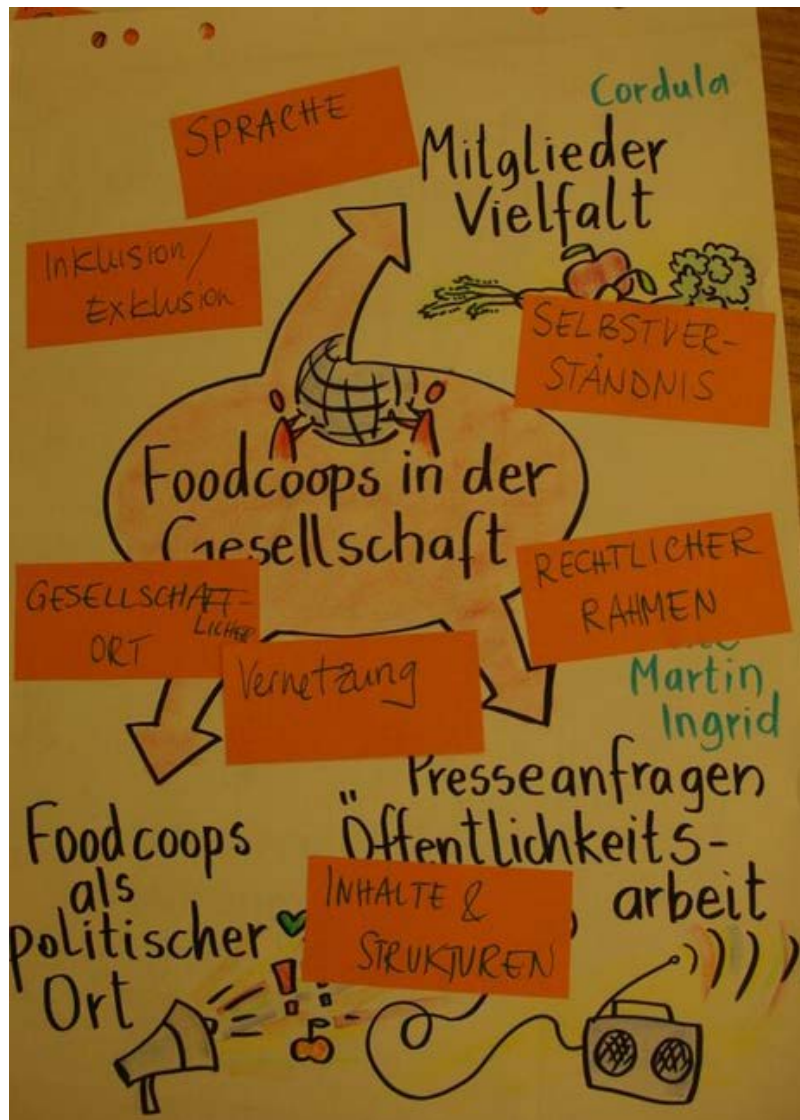 Cordula
SPRACHE
Mitglieder
Vielfalt
Inklusion/
Exklusion
SELBSTVER-
STÄNDNIS
Foodcoops in der
Gesellschaft
RECHTLICHER
RAHMEN
GESELLSCHAFT-
LICHER
ORT
Vernetzung
Martin
Ingrid
Presseanfragen
Öffentlichkeits-
arbeit
Foodcoops
als
politischer
Ort
INHALTE &
STRUKTUREN